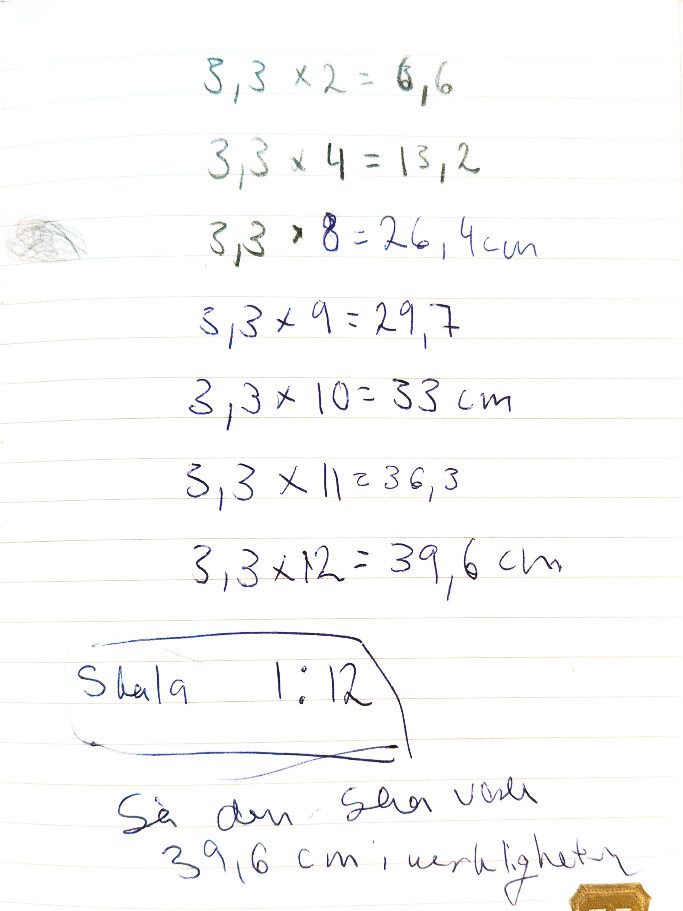 3,3 × 2 = 6,6
3,3 × 4 = 13,2
3,3 × 8 = 26,4 cm
3,3 × 9 = 29,7
3,3 × 10 = 33 cm
3,3 × 11 = 36,3
3,3 × 12 = 39,6 cm
Skala 1:12
Så den ska
39,6 cm i verkligheten